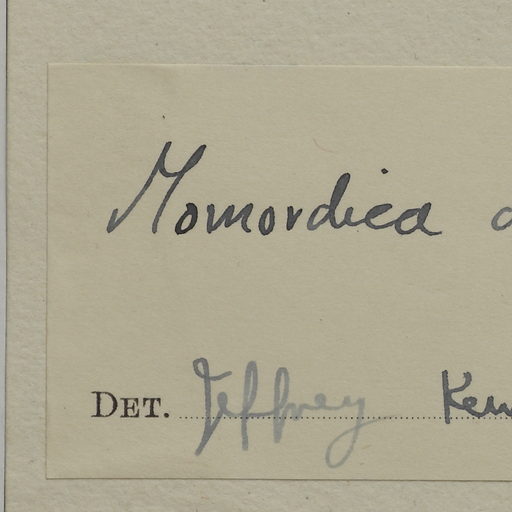 Momordica
DET. Jeffrey Kew